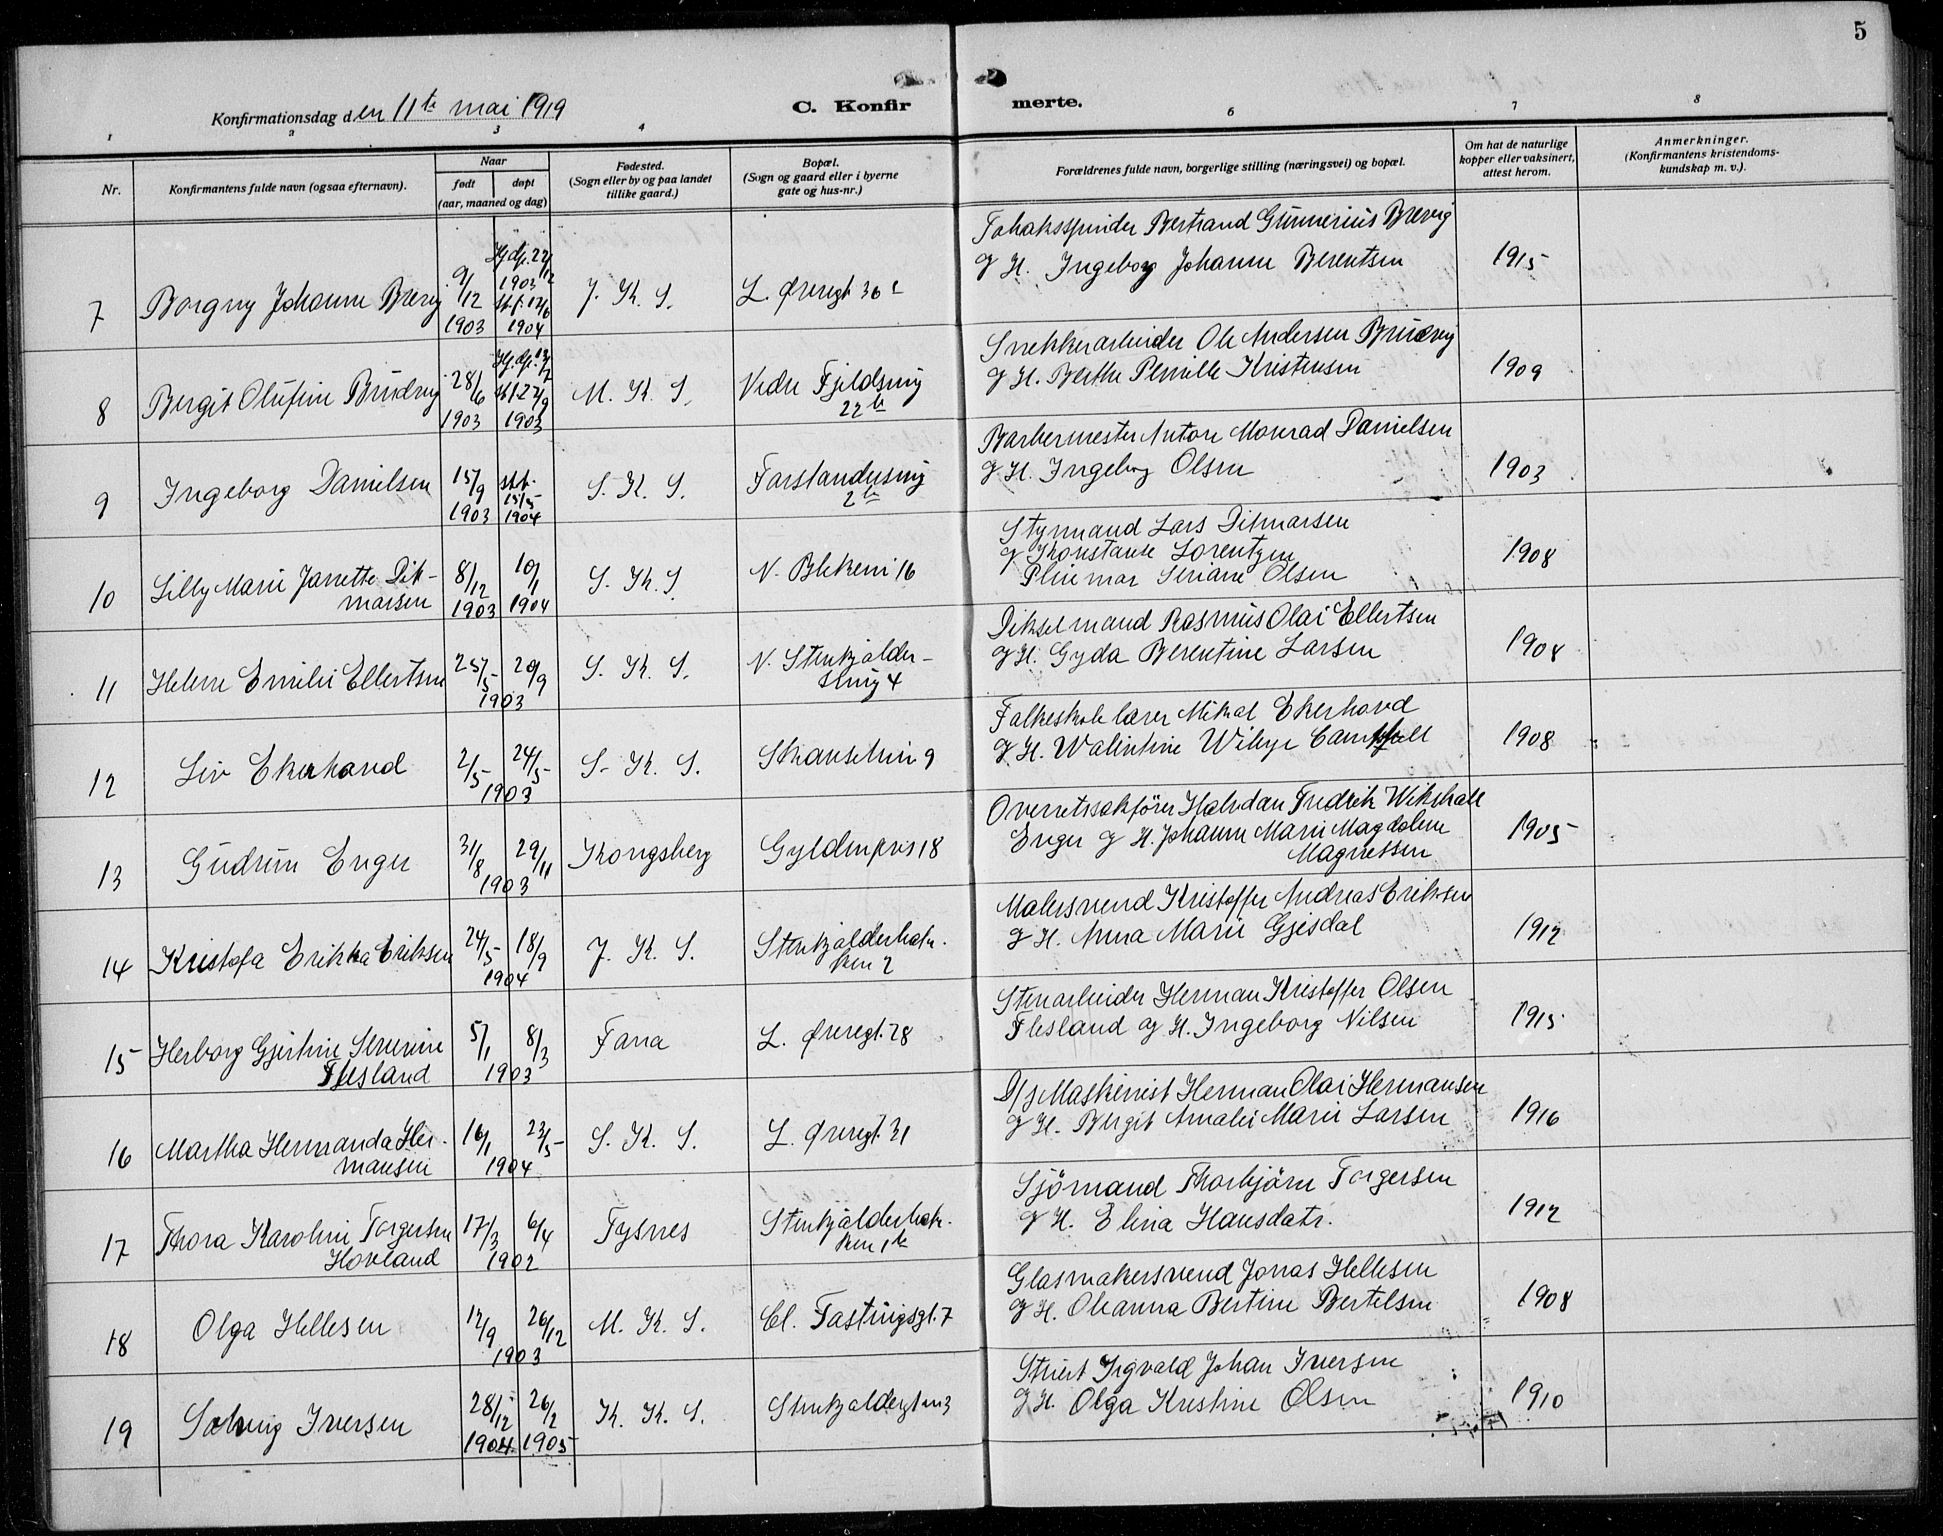 5
Konfirmationsdag den 11te mai 1919
C. Konfir merte.
1 2 3 4 6 7 8
Nr.
Konfirmantens fulde navn (ogsaa efternavn).
Naar
født døpt
(aar, maaned og dag)
Fødested.
(Sogn eller by og paa landet
tillike gaard.)
Bopæl.
(Sogn og gaard eller i byerne
gate og hus-nr.)
Forældrenes fulde navn, borgerlige stilling (næringsvei) og bopæl.
Om hat de naturlige
kopper eller vaksinert,
attest herom.
Anmerkninger.
(Konfirmantens kristendoms-
kundskap m. v.).
7 Borgny Johanne Brevig
9/12 1903
Hj.dp. 27/12 1903
st.f. 12/6 1904
J. K. S.
L. Øvregt. 36
Tobaksspinder Bertrand Gunnerius Brevig
g H. Ingeborg Johanne Berentsen
1915
8 Bergit Olufine Brudvig
28/6 1903
Hj.dp.
st.f. 27/9 1903
M. K. S.
Nedre Fjeldsmug
22 b
Snekkerarbeider Ole Andersen Brudvig
g H. Berthe Pernille Kristensen
1909
9 Ingeborg Danielsen
15/9 1903
st.f. 15/5 1904
S. K. S.
Forstandersmug
2 b
Barbermester Anton Monrad Danielsen
g H. Ingeborg Olsen
1903
10 Lilly Marie Janette Dit-
marsen
8/12 1903
10/1 1904
S. K. S.
N. Blekevei 16
Styrmand Lars Ditmarsen
g Konstanse Lorentzen
Pleiemor Seriane Olsen
1908
11 Helene Emilie Ellertsen
25/5 20/9
1903
S. K. S.
N. Stenkjelder-
smug 4
Dikselmand Rasmus Olai Ellertsen
g H. Gyda Berentine Larsen
1908
12 Liv Ekerhovd
2/5 24/5
1903
S. K. S.
Skanselien 9
Folkeskolelærer Mikal Ekerhovd
g H. Walentine Wibye Campbell
1908
13 Gudrun Enger
31/8 29/11
1903
Kongsberg
Gyldenpris 18
Overretssakfører Halvdan Fredrik Wikshall
Enger g H. Johanne Marie Magdalene
Magnessen
1905
14 Kristofa Erikka Eriksen
24/5 18/9
1904
J. K. S.
Stenkjelderbak-
ken 2
Malersvend Kristoffer Andreas Eriksen
g H. Anna Marie Gjesdal
1912
15 Herborg Gjertine Severine
Flesland
5/1 8/3
1903
Fana
L. Øvregt. 28
Stenarbeider Herman Kristoffer Olsen
Flesland og H. Ingeborg Nilsen
1915
16 Martha Hermanda Her-
mansen
16/1 23/5
1904
S. K. S.
L. Øvregt. 31
D/s Maskinist Herman Olai Hermansen
g H. Bergit Amalie Marie Larsen
1916
17 Thora Karoline Torgersen
Hovland
17/3 6/4
1902
Tysnes
Stenkjelderbak-
ken 1 b
Sjömand Thorbjörn Torgersen
g H. Elina Hansdatr.
1912
18 Olga Hellesen
12/9 26/12
1903
M. K. S.
Cl. Fastingsgt. 7
Glasmakersvend Jonas Hellesen
g H. Oleanna Bertine Bertelsen
1908
19 Solveig Iversen
28/12 1904
26/2 1905
K. K. S.
Stenkjeldergten 3
Stuert Sigvald Johan Iversen
g H. Olga Kristine Olsen
1910